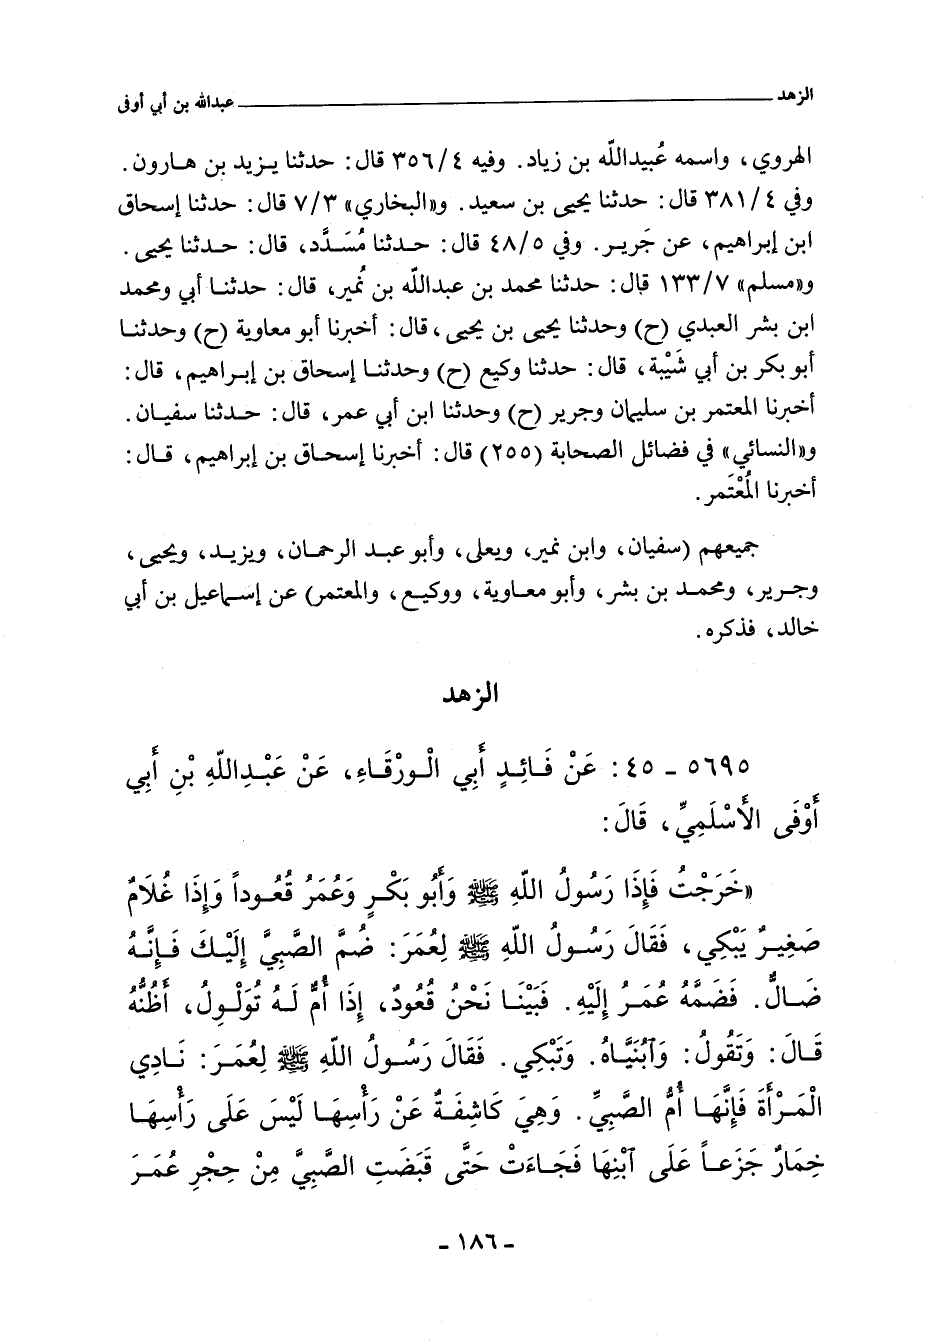 الزهد ــــــــــ عبدالله بن أبي أوفى
الهروي، واسمه عُبيدالله بن زياد. وفيه ٣٥٦/٤ قال: حدثنا يزيد بن هارون.
وفي ٣٨١/٤ قال: حدثنا يحيى بن سعيد. و«البخاري» ٧/٣ قال: حدثنا إسحاق
ابن إبراهيم، عن جَرير. وفي ٤٨/٥ قال: حدثنا مُسَدَّد، قال: حدثنا يحيى.
و«مسلم» ١٣٣/٧ قال: حدثنا محمد بن عبدالله بن نُمير، قال: حدثنا أبي ومحمد
ابن بشر العبدي (ح) وحدثنا يحيى بن يحيى، قال: أخبرنا أبو معاوية (ح) وحدثنا
أبو بكر بن أبي شَيْبة، قال: حدثنا وكيع (ح) وحدثنا إسحاق بن إبراهيم، قال:
أخبرنا المعتمر بن سليمان وجرير (ح) وحدثنا ابن أبي عمر، قال: حدثنا سفيان.
و«النسائي» في فضائل الصحابة (٢٥٥) قال: أخبرنا إسحاق بن إبراهيم، قال:
أخبرنا المُعْتَمر.
جميعهم (سفيان، وابن نمير، ويعلى، وأبو عبد الرحمان، ويزيد، ويحيى،
وجرير، ومحمد بن بشر، وأبو معاوية، ووكيع، والمعتمر) عن إسماعيل بن أبي
خالد، فذكره.
الزهد
٥٦٩٥ - ٤٥: عَنْ فَائِدٍ أَبِي الْوَرْقَاءِ، عَنْ عَبْدِاللّهِ بْنِ أَبِي
أَوْفَى الأَسْلَمِيِّ، قَالَ:
«خَرَجْتُ فَإِذَا رَسُولُ اللّهِ ﷺ وَأَبُو بَكْرٍ وَعُمَرُ قُعُوداً وَإِذَا غُلَامٌ
صَغِيرٌ يَبْكِي، فَقَالَ رَسُولُ اللّهِ ﷺ لِعُمَرَ: ضُمَّ الصَّبِيَّ إِلَيْكَ فَإِنَّهُ
ضَالٌّ. فَضَمَّهُ عُمَرُ إِلَيْهِ. فَبَيْنَا نَحْنُ قُعُودٌ، إِذَا أُمٌّ لَهُ تُوَلْوِلُ، أَظُنُّهُ
قَالَ: وَتَقُولُ: وَآبُنَيَّاهُ. وَتَبْكِي. فَقَالَ رَسُولُ اللّهِ ﷺ لِعُمَرَ: نَادِي
الْمَرْأَةَ فَإِنَّهَا أُمُّ الصَّبِيِّ. وَهِيَ كَاشِفَةٌ عَنْ رَأْسِهَا لَيْسَ عَلَى رَأْسِهَا
خِمَارٌ جَزَعاً عَلَى آبْنِهَا فَجَاءَتْ حَتَّى قَبَضَتِ الصَّبِيَّ مِنْ حِجْرِ عُمَرَ
- ١٨٦ -